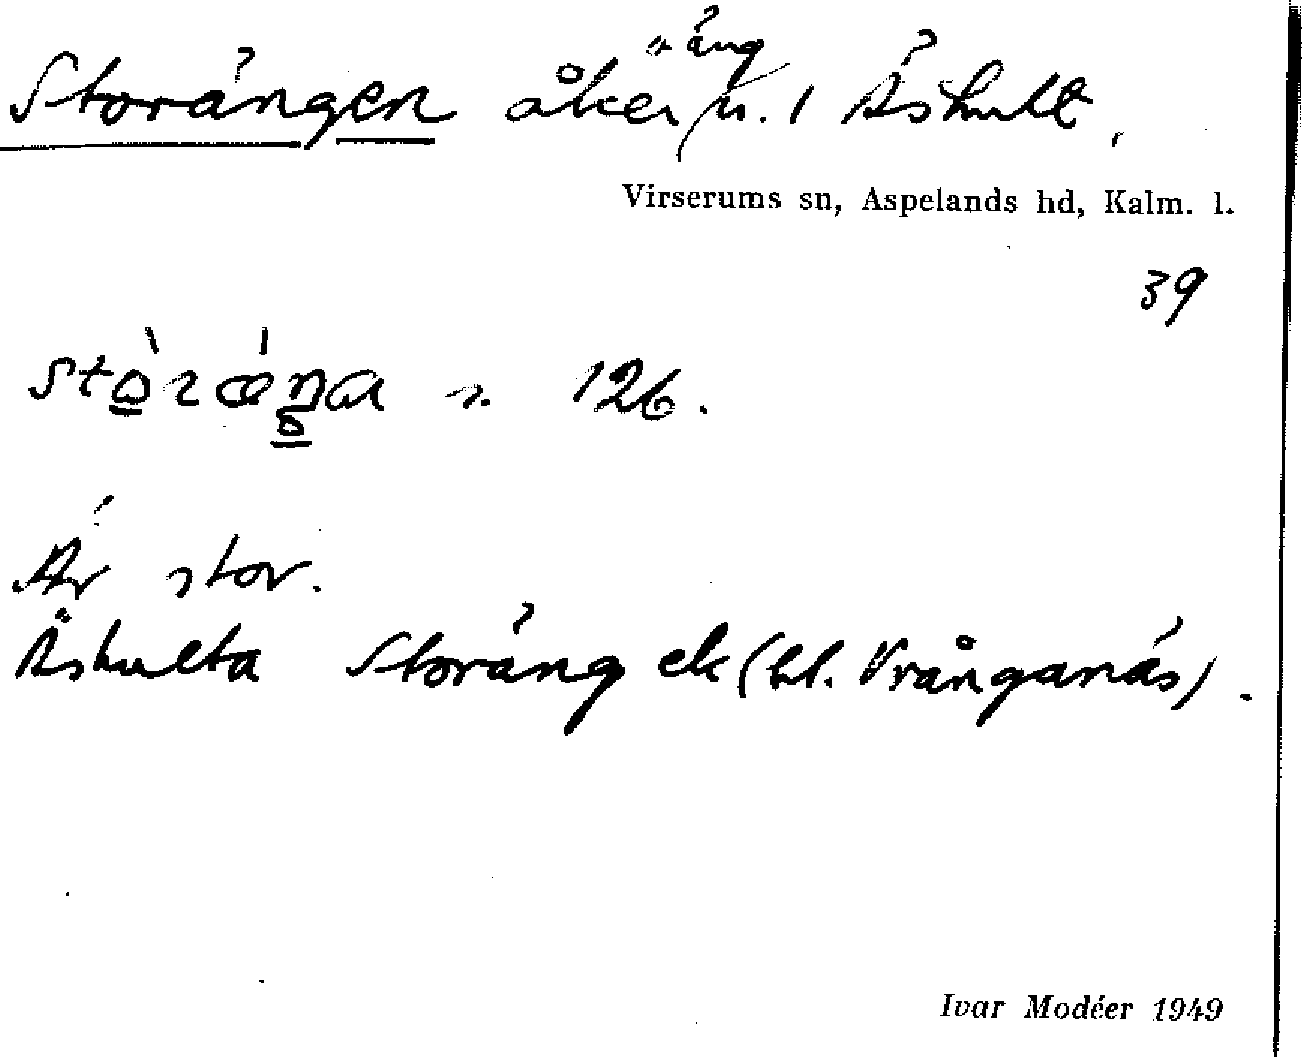 Storängen åker n. 1 Äskult,
o äng
Virserums sn, Aspelands hd, Kalm. l.
39
n. 126.
Är stor.
Äskulta Storäng ek (bl. Vrånganäs).
Ivar Modéer 1949